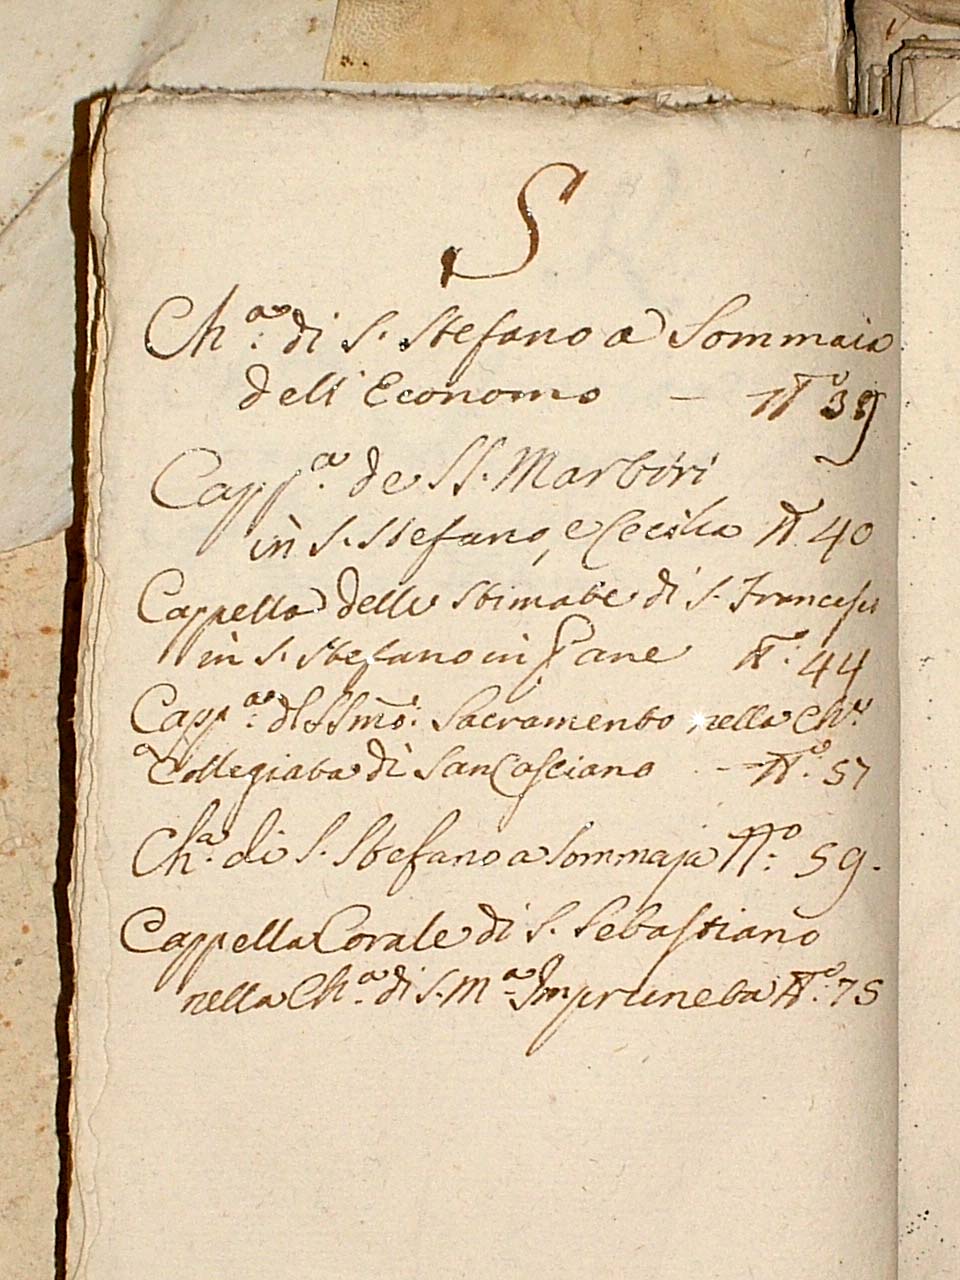 S
Ch.ª di S. Stefano a Sommaia
dell'Economo — N.º 39
Capp.ª de SS. Martiri
in S. Stefano, e Cecilia N. 40
Cappella delle Stimate di S. Francesco
in S. Stefano in Pane N.º 44
Capp.ª del SSmo: Sacramento nella Ch.ª
Collegiata di San Casciano — N.º 57
Ch.ª di S. Stefano a Sommaja N.º 59.
Cappella Corale di S. Sebastiano
nella Ch.ª di S. M.ª Impruneta N.º 75